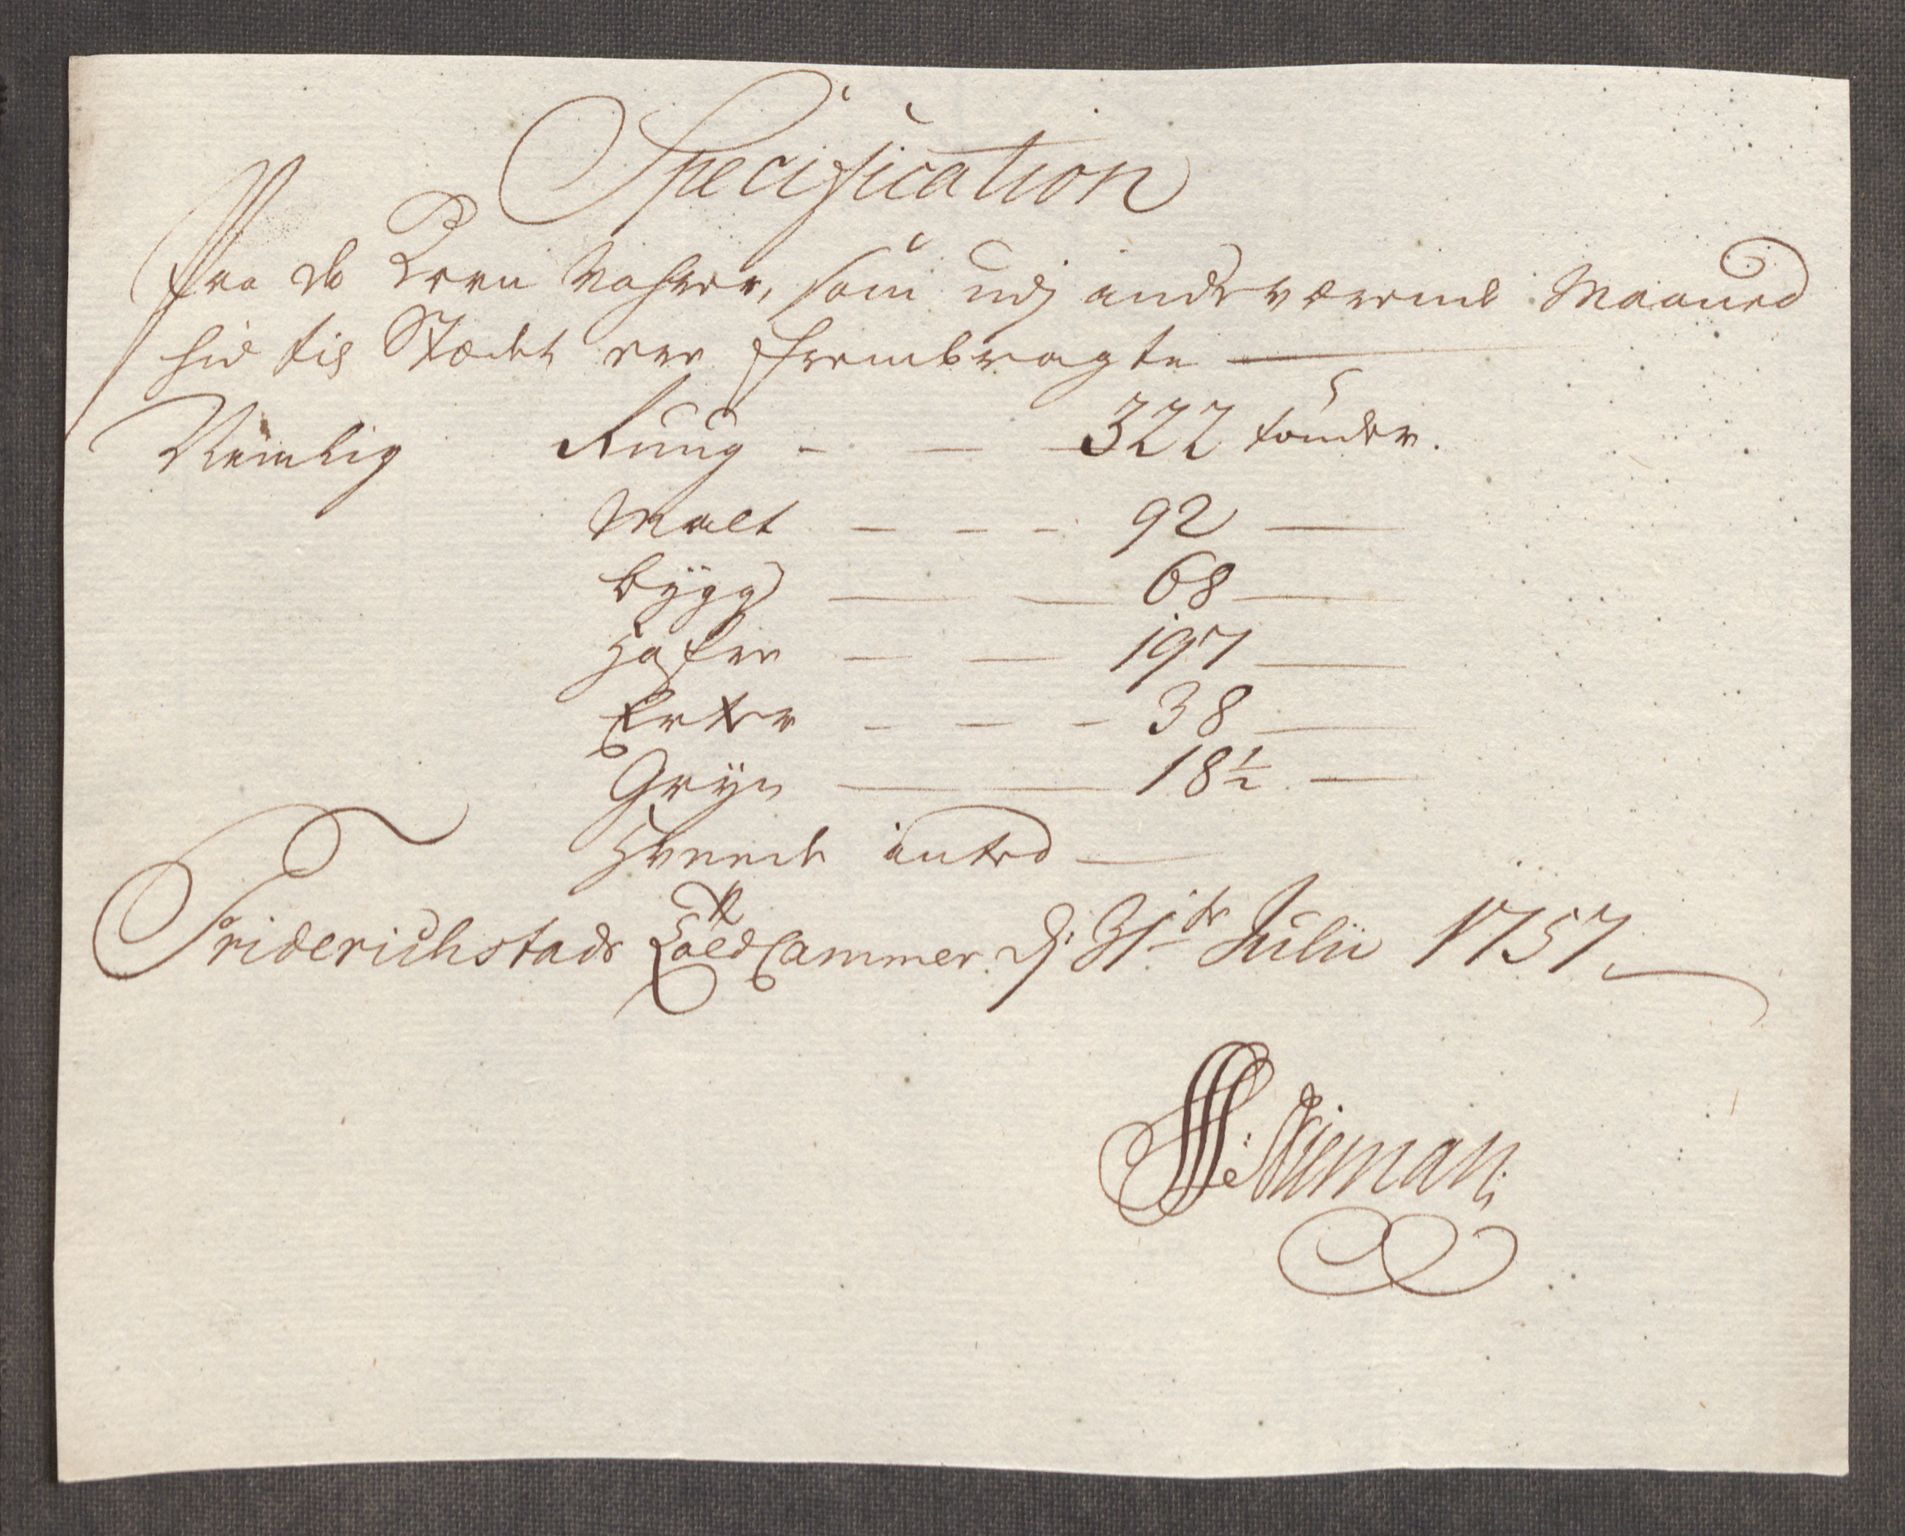 Specification
Paa de Korn Vahrer, som udj indeværende Maaned
hid til Stædet ere frembragte
Nemlig Ruug - - - 322 tønder.
Malt - - - 92 —
bygg — — 68 —
Hafre — — 197 —
Erter - - - 38 —
Gryn — — 18½ —
Hveede inted —
Friderichstads Told Cammer d: 31te Julii 1757
Nieman